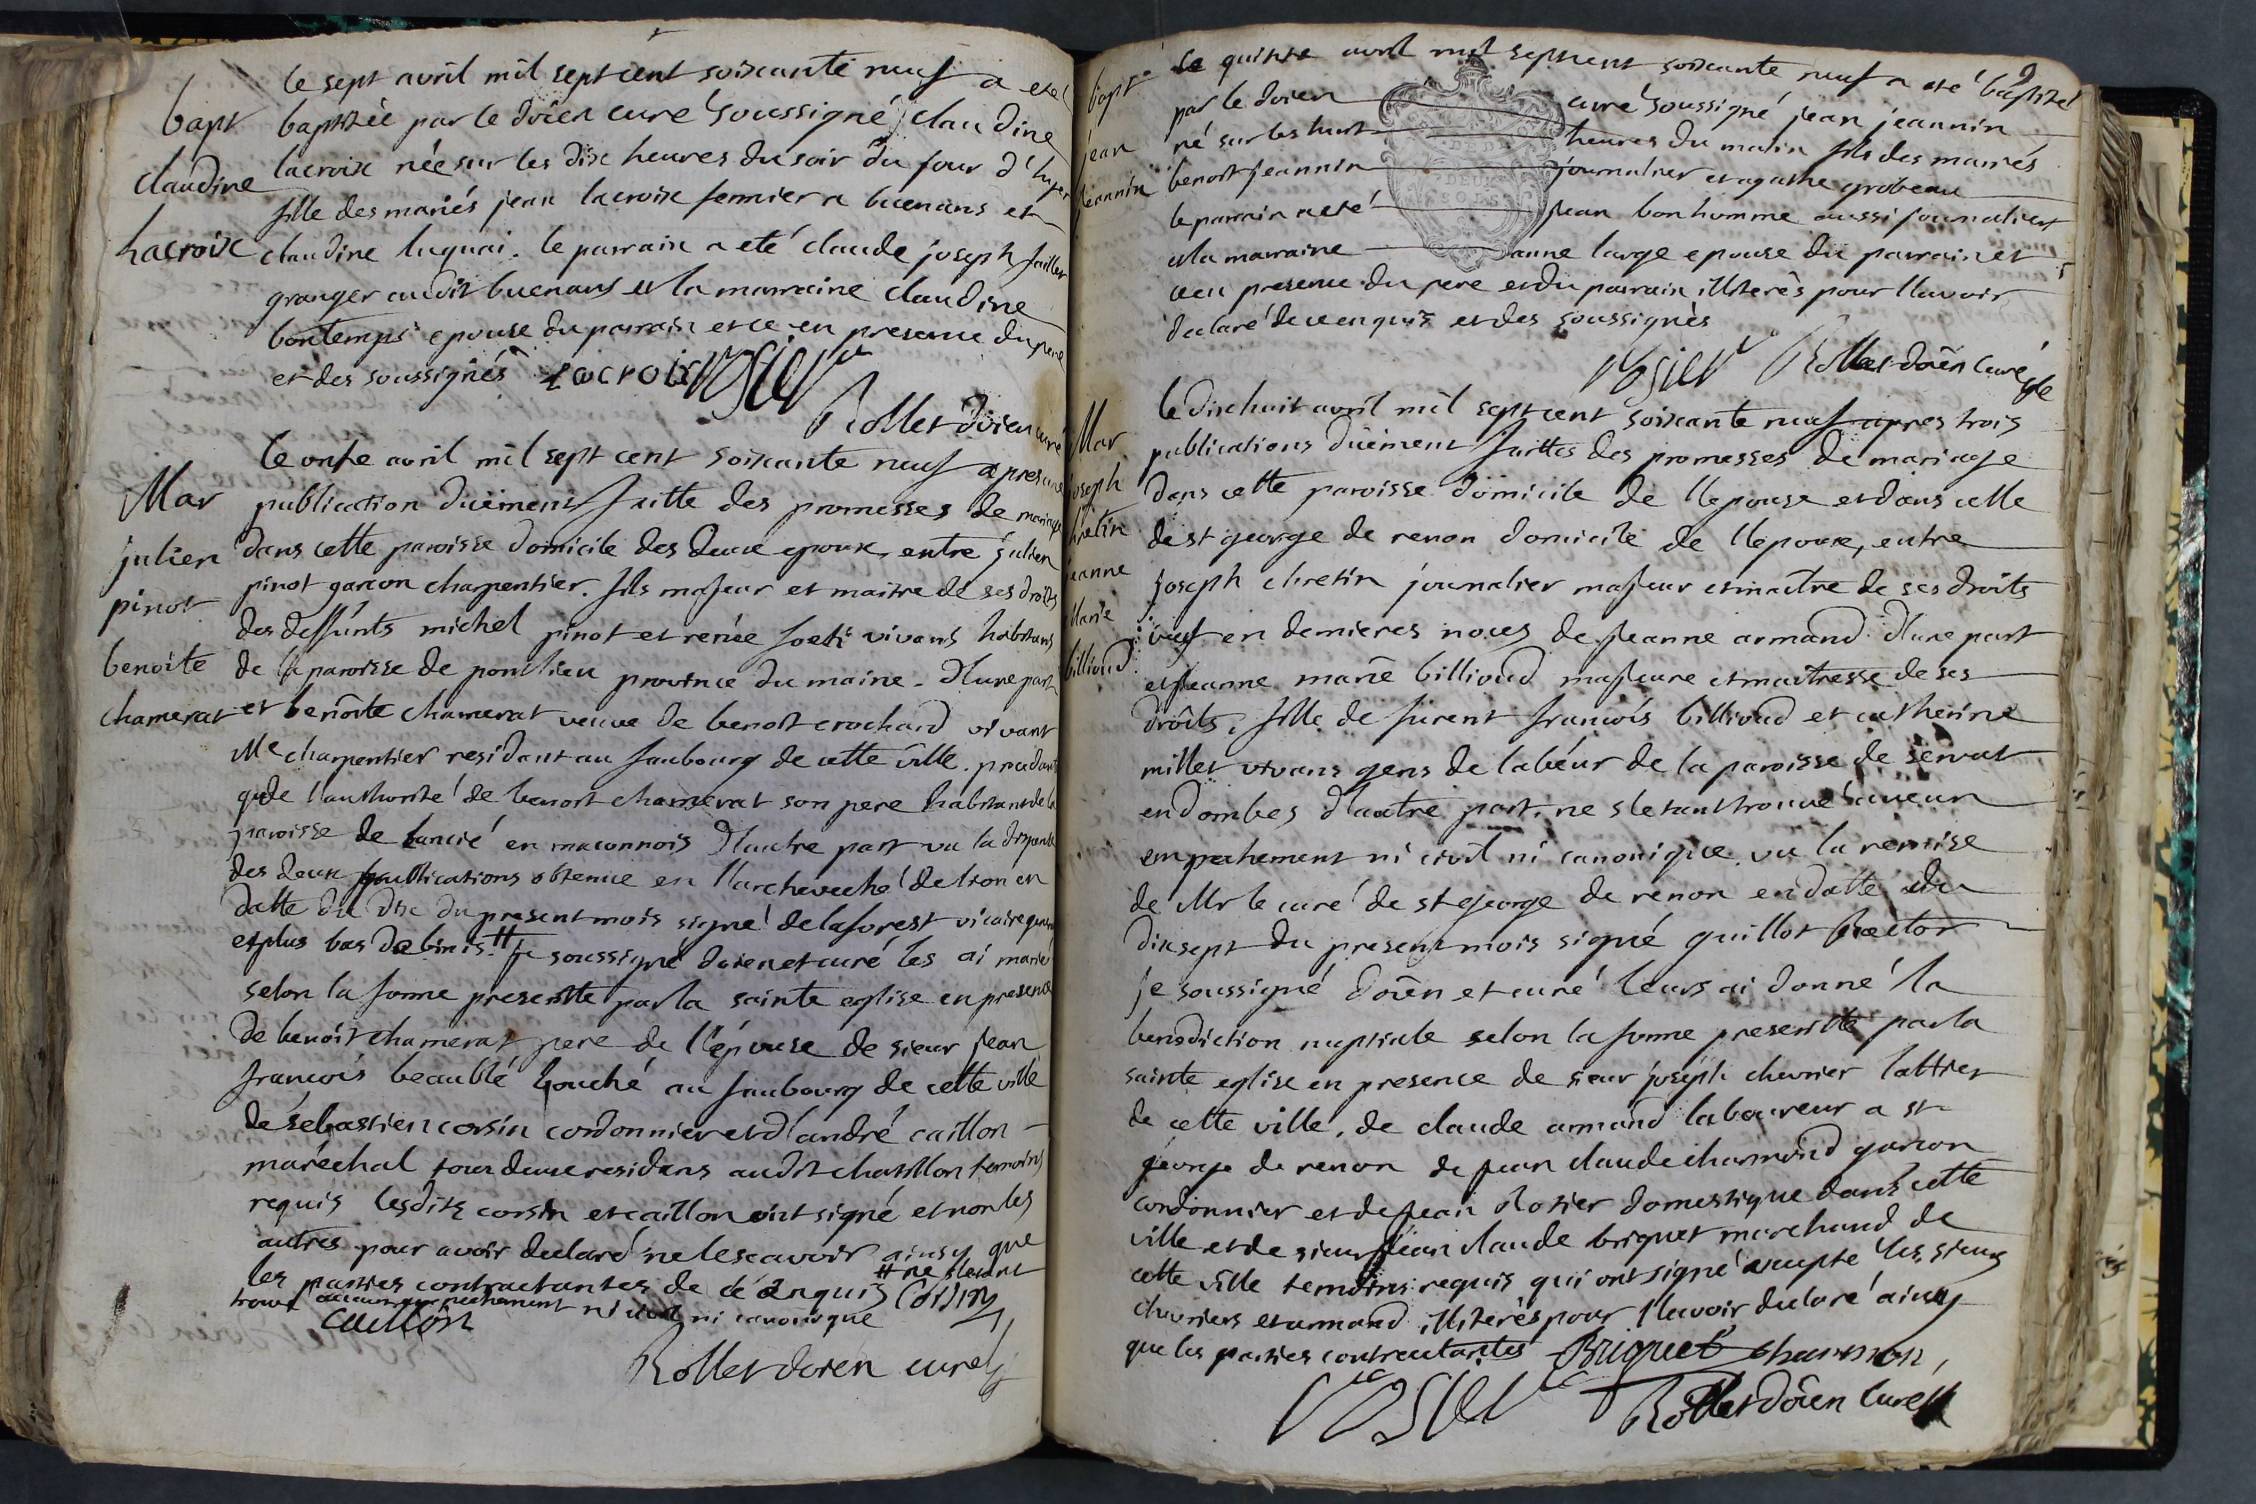 bapt
claudine
Lacroix
le sept avril mil sept cent soixante neuf a eté
baptizée par le doien curé soussigné claudine
lacroix née sur les dix heures du soir du jour d'hyer
fille des mariés jean lacroix fermier a buenans et
claudine luquai. le parrain a eté claude joseph
granger audit buenans et la marraine claudine
bontemps epouse du parrain et ce en presence du pere
et des soussignés Lacroix
Rollet doien curé
Mar
julien
pinot
benoite
chamerat
le onze avril mil sept cent soixante neuf apres une
publication duëment faitte des promesses de mariage
dans cette paroisse domicile des deux epoux, entre julien
pinot garcon charpentier. fils majeur et maitre de ses droits
des deffunts michel pinot et renée vivans habitans
de la paroisse de pontlieu province du maine. d'une part
et benoite chamerat veuve de benoit crochard vivant
Me charpentier residant au faubourg de cette ville. procedant
de l'authorité de benoit chamerat son pere habitant de la
paroisse de lancié en maconnois d'autre part vu la dispense
des deux publications obtenue en l'archeveché de lion en
datte du dix du present mois signé delaforest vicaire general
et plus bas # je soussigné doien et curé les ai marié
selon la forme prescritte par la sainte eglise en presence
de benoit chamerat pere de l'épouse de sieur jean
francois beaublé au faubourg de cette ville
de sebastien corsin cordonnier et d'andré caillon
maréchal tous deux residans audit chatillon temoins
requis lesdits corsin et caillon ont signé et non les
autres pour avoir declaré ne le scavoir ainsy que
les parties contractantes de ce enquis # ne s'etant
trouvé aucun empechement ni civil ni canonique Corsin
caillon
Rollet doien curé
bapt
jean
jeannin
Le quinze avril mil sept cent soixante neuf a eté baptizé
par le doien curé soussigné jean jeannin
né sur les huit heures du matin fils des mariés
benoit jeannin journalier et agathe grobeau
le parrain a eté jean bonhomme aussi journalier
et la marraine anne large epouse du parrain et
ce en presence du pere et du parrain illiterés pour l'avoir
declaré de ce enquis et des soussignés
Rollet doien curé
Mar
joseph
chretin
jeanne
Marie
billioud
le dixhuit avril mil sept cent soixante neuf apres trois
publications duëment faittes des promesses de mariage
dans cette paroisse domicile de l'epouse et dans celle
de st george de renon domicile de l'epoux, entre
joseph chretin journalier majeur et maître de ses droits
veuf en dernieres noces de jeanne armand d'une part
et jeanne marie billioud majeure et maitresse de ses
droits, fille de furent francois billioud et catherine
millet vivans gens de labéur de la paroisse de servat
en dombes d'autre part. ne s'etant trouvé aucun
empechement ni civil ni canonique. vu la remise
de Mr le curé de st george de renon en datte du
dixsept du present mois signé guillot
je soussigné doien et curé leurs ai donné la
benediction nuptiale selon la forme prescritte par la
sainte eglise en presence de sieur joséph chevrier lattier
de cette ville, de claude armand laboureur a st
george de renon de jean claude charmond garcon
cordonnier et de jean rotier domestique dans cette
ville et de sieur jean claude briquet marchand de
cette ville temoins requis qui ont signé excepté les sieurs
chevriers et armand illiterés pour l'avoir declaré ainsy
que les parties contractantes Briquet charmon
Rollet doien curé